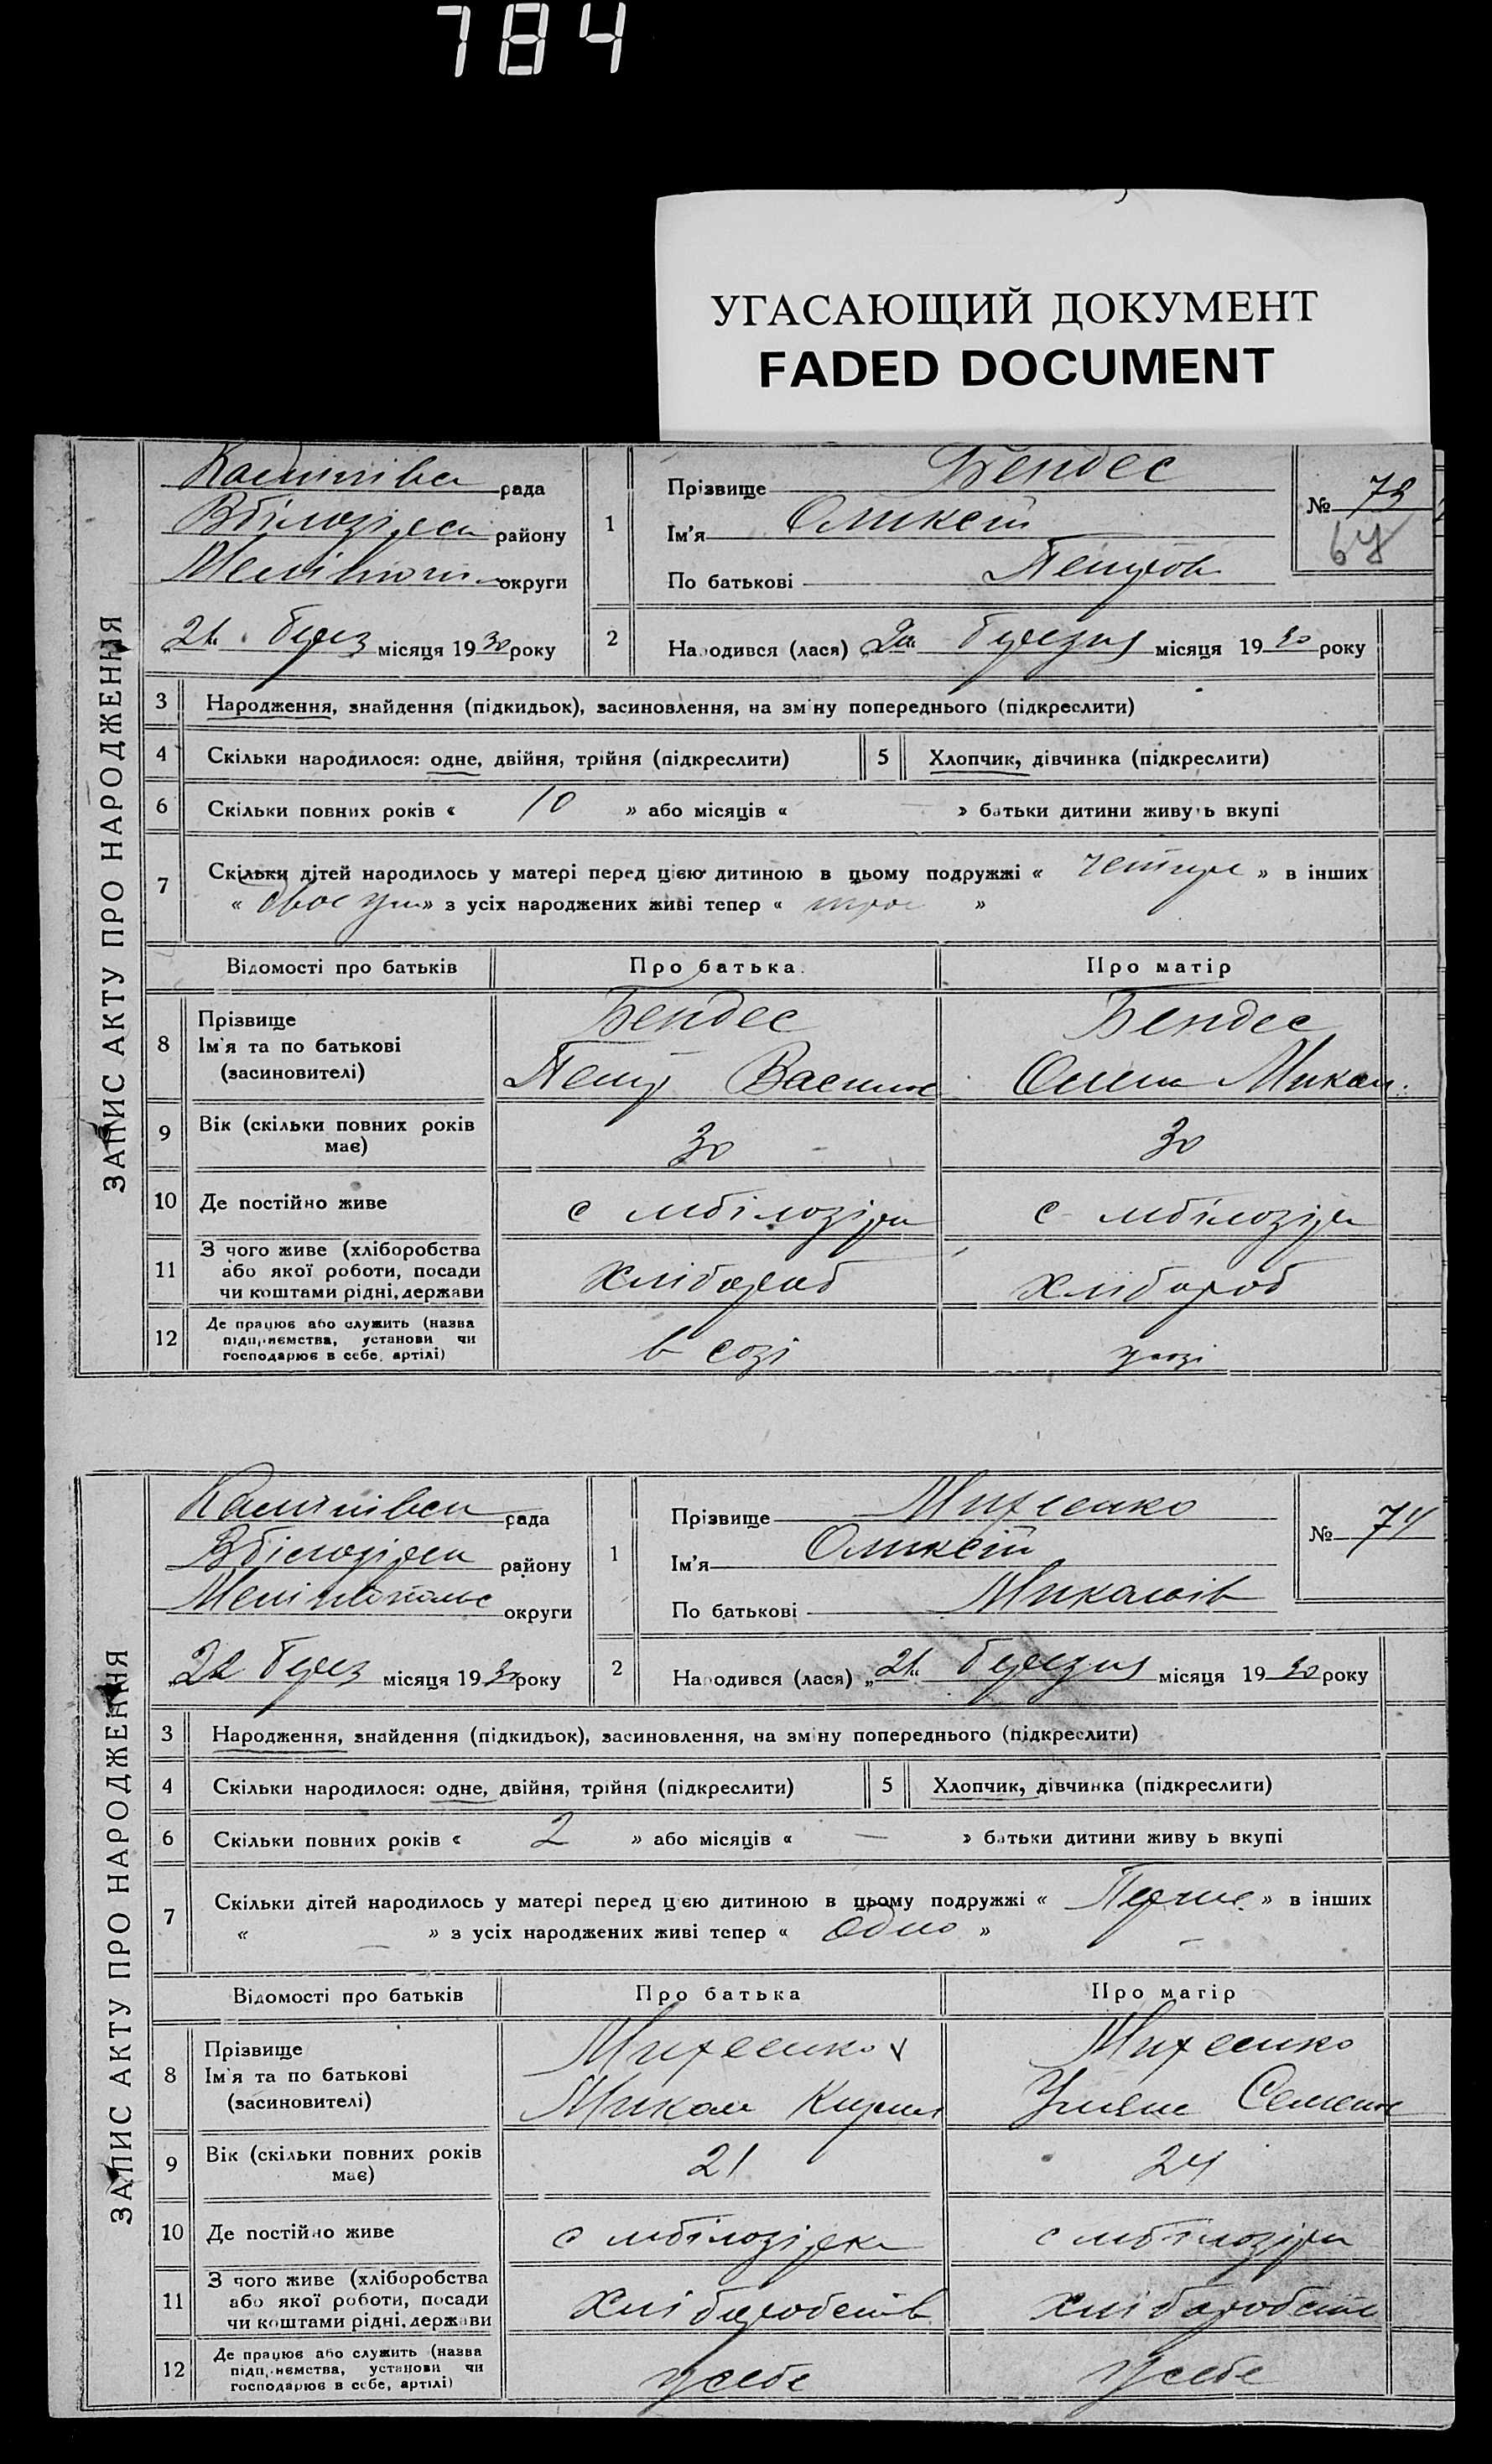 784
УГАСАЮЩИЙ ДОКУМЕНТ
FADED DOCUMENT
ЗАПИС АКТУ ПРО НАРОДЖЕННЯ
рада
району
округи
21 берез місяця 1930 року
1 Прізвище Бендес
Ім'я Оликсій
По батькові Петров
№ 73
64
2 Народився (лася) березня місяця 1930 року
3 Народження, знайдення (підкидьок), засиновлення, на зміну попереднього (підкреслити)
4 Скільки народилося: одне, двійня, трійня (підкреслити) 5 Хлопчик, дівчинка (підкреслити)
6 Скільки повних років « 10 » або місяців « — » батьки дитини живуть вкупі
7 Скільки дітей народилось у матері перед цією дитиною в цьому подружжі « четире » в інших
« двое » з усіх народжених живі тепер « трое »
Відомості про батьків Про батька Про матір
8 Прізвище Ім'я та по батькові (засновителі) Бендес Бендес
Петр Василев Олена Микол.
9 Вік (скільки повних років має) 30 30
10 Де постійно живе с мбілозірка с мбілозірка
11 З чого живе (хліборобства або якої роботи, посади чи коштами рідні, держави хлібороб хлібороб
12 Де працює або служить (назва підприємства, установи чи господарює в себе, артілі) в созі у созі
ЗАПИС АКТУ ПРО НАРОДЖЕННЯ
рада
району
округи
22 берез місяця 1930 року
1 Прізвище Михеенко
Ім'я Оликсій
По батькові Миколаїв
№ 74
2 Народився (лася) „21“ березня місяця 1930 року
3 Народження, знайдення (підкидьок), засиновлення, на зміну попереднього (підкреслити)
4 Скільки народилося: одне, двійня, трійня (підкреслити) 5 Хлопчик, дівчинка (підкреслити)
6 Скільки повних років « 2 » або місяців « — » батьки дитини живуть вкупі
7 Скільки дітей народилось у матері перед цією дитиною в цьому подружжі « Перше » в інших
« — » з усіх народжених живі тепер « одно »
Відомості про батьків Про батька Про матір
8 Прізвище Ім'я та по батькові (засиновителі) Михеенко Михеенко
Микола Кирил Уляна Семенов
9 Вік (скільки повних років має) 21 24
10 Де постійно живе с мбілозірка с мбілозірка
11 З чого живе (хліборобства або якої роботи, посади чи коштами рідні, держави хлiборобств хліборобств
12 Де працює або служить (назва підприємства, установи чи господарює в себе, артілі) у себе у себе